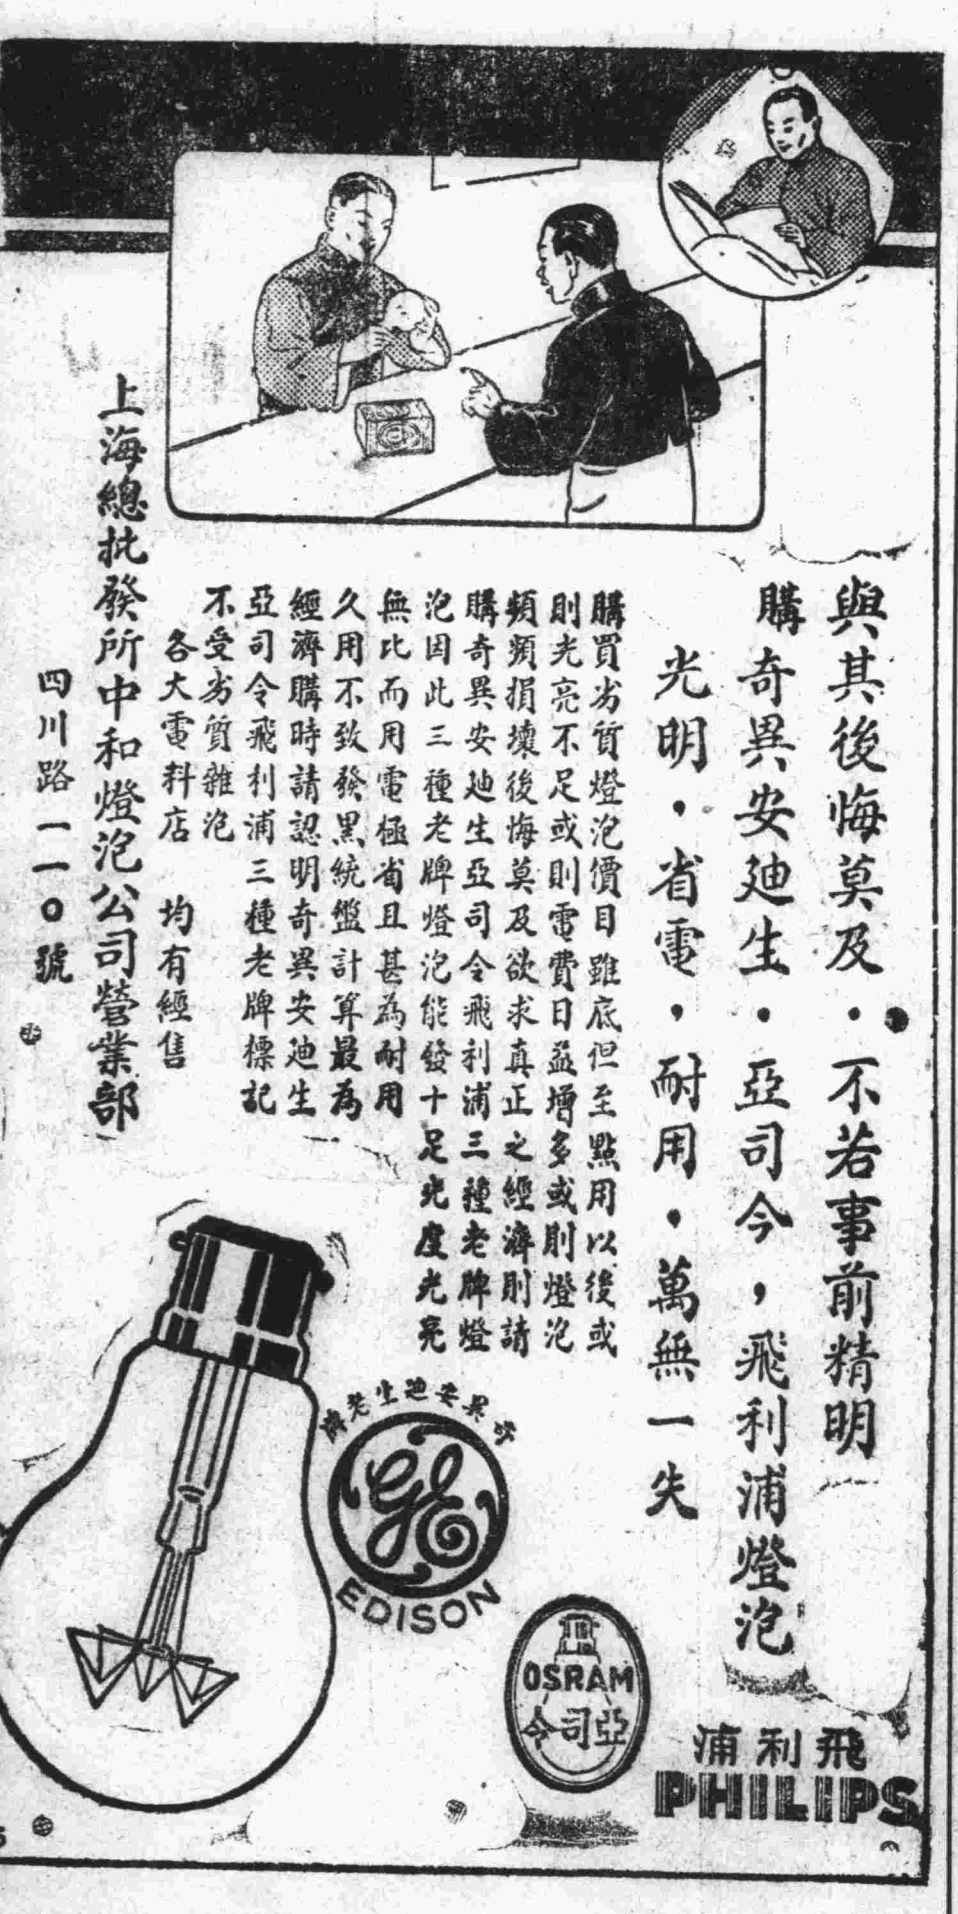 與其後悔莫及・不若事前精明
購奇異安廸生・亞司令，飛利浦燈泡
光明・省電，耐用・萬無一失
購買劣質燈泡價目雖底但至點用以後或
則光亮不足或則電費日益增多或則燈泡
頻頻損壞後悔莫及欲求真正之經濟則請
購奇異安廸生亞司令飛利浦三種老牌燈
泡因此三種老牌燈泡能發十足光度光亮
無比而用電極省且甚為耐用
久用不致發黑統盤計算最為
經濟購時請認明奇異安廸生
亞司令飛利浦三種老牌標記
不受劣質雜泡
各大電料店 均有經售
上海總批發所中和燈泡公司營業部
四川路一一〇號
奇異安廸生老牌
GE
EDISON
OSRAM
亞司令
飛利浦
PHILIPS